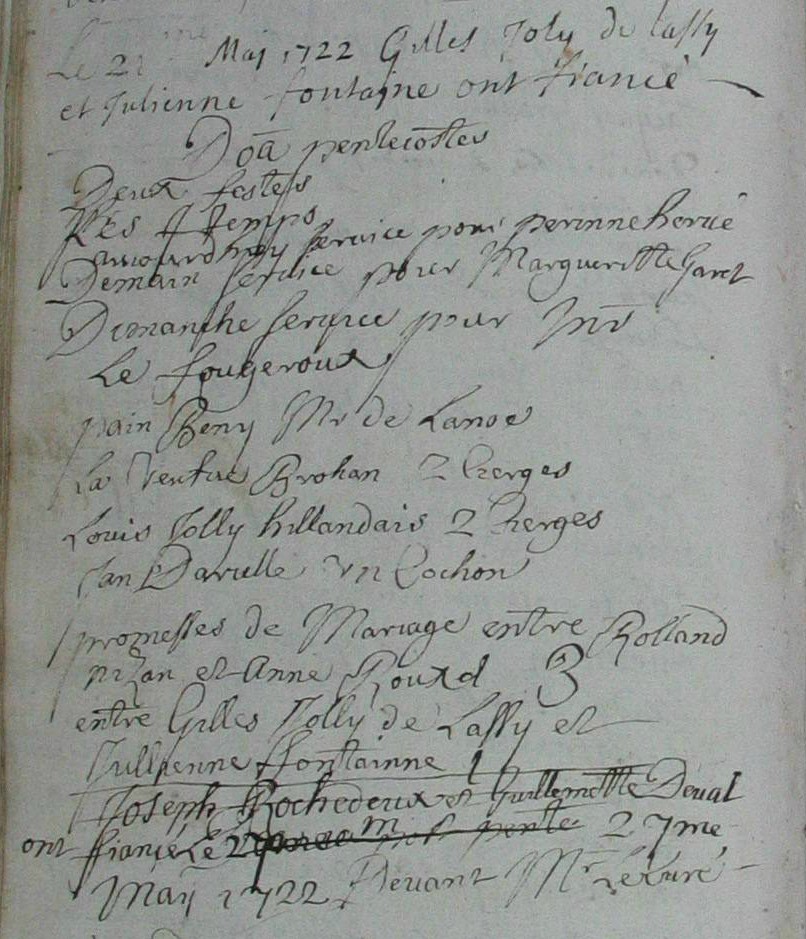 Le 21 May 1722 Gilles Joly de lassy
et Julienne fontayne ont fiancé
Doã pentecostes
Deux festes
Les 4 temps
aujourdhuy service pour perinne hervé
Demain service pour Margueritte Garet
Dimanche service pour Mr
Le fougeroux
pain Beny Mr de Lanoe
La Veufue Brohan 2 Cierges
Louis Jolly hillandais 2 Cierges
Jan Darulle vn Cochon
promesses de Mariage entre Rolland
et Anne Rouxel 3
entre Gilles Jolly de Lassy et
Jullienne ffontainne 1
Joseph Rochedeux et Guillemette Deual
ont fiancé Le 27me
May 1722 Devant Mr Le Curé